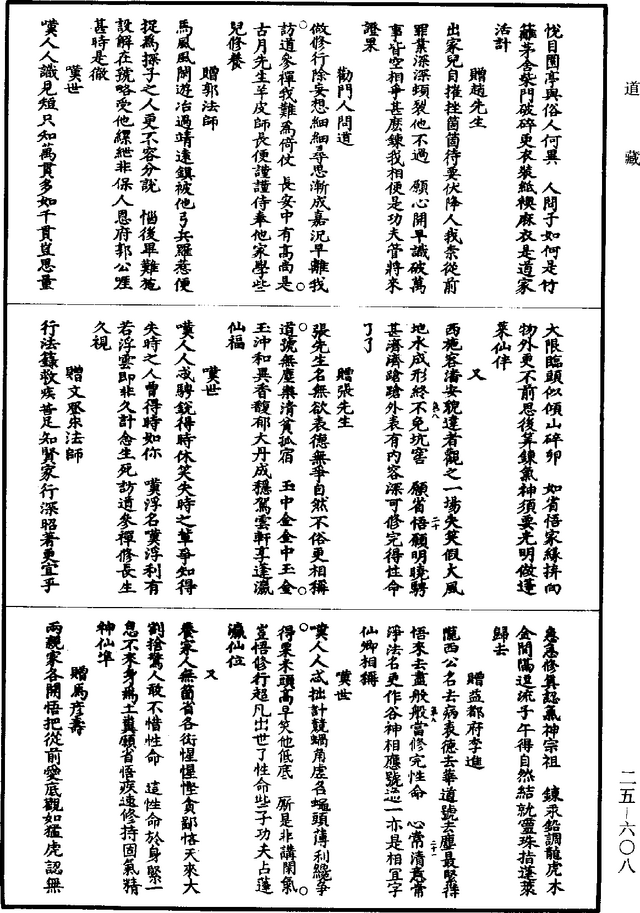 道藏
悅目園亭與俗人何異　人間子如何是竹
籬茅舍柴門破碎更衣裝紙襖麻衣是道家
活計
贈趙先生
出家兒自摧挫箇箇待要伏降人我柰從前
罪業深深頰裂他不過　願心開早識破萬
事皆空相爭甚麽鍊我相便是功夫管將來
證果
勸門人問道
做修行除妄想細細尋思漸成嘉況早離我
訪道參禪我難爲倚仗　長安中有高尚是
古月先生羊皮師長便謹謹侍奉他家學些
兒修養
贈郭法師
馬風風閑遊冶過靖遠鎮被他弓兵羅惹便
捉爲探子之人更不容分說　惱後畢難施
設解在虢略受他縲紲非保人恩府郭公涯
甚時是徹
嘆世
嘆人人識見短只知萬貫多如千貫豈思量
大限臨頭似傾山碎卵　如省悟家緣拚向
物外更不前思後筭鍊氣神須要光明做蓬
萊仙伴
又
西施容潘安貌達者觀之一場失笑假大風
地水成形終不免坑窖　願省悟願明曉騁
甚濟濟蹌蹌外表有內容深可修完得性命
了了
贈張先生
張先生名無欲表德無爭自然不俗更相稱
道號無塵樂清貧孤宿　玉中金金中玉金
玉沖和異香馥郁大丹成穩駕雲軒享蓬瀛
仙福
嘆世
嘆人人成騁銳得時休笑失時之輩爭知得
失時之人曾得時如你　嘆浮名嘆浮利有
若浮雲即非久計念生死訪道參禪修長生
久視
贈文登宋法師
行法籙救疾苦足知賢家行深昭著更宜乎
急急修真認氣神宗祖　鍊汞鉛調龍虎木
金間隔逗流子午得自然結就靈珠指蓬萊
歸去
贈益都府李進
隴西公名去病表德去華道號去塵最緊得
悟來去盡般般當修完性命　心常清意常
淨法名更作谷神相應號志一亦是相宜字
仙卿相稱
嘆世
嘆人人忒拙計競蝸角虛名蠅頭薄利纔爭
得某未頭高早笑他低底　厮是非講閑氣
豈悟修行超凡出世了性命些子功夫占蓬
瀛仙位
又
養家人無箇省各衒惺惺慳貪鄙恡天來大
劄捨驚人敢不惜性命　這性命於身緊一
息不來身爲土糞願省悟疾速修持固氣精
神仙準
贈馬彥壽
兩親家各開悟把從前愛底觀如猛虎認無
第八
二十
第八
二十一
二五—六〇八